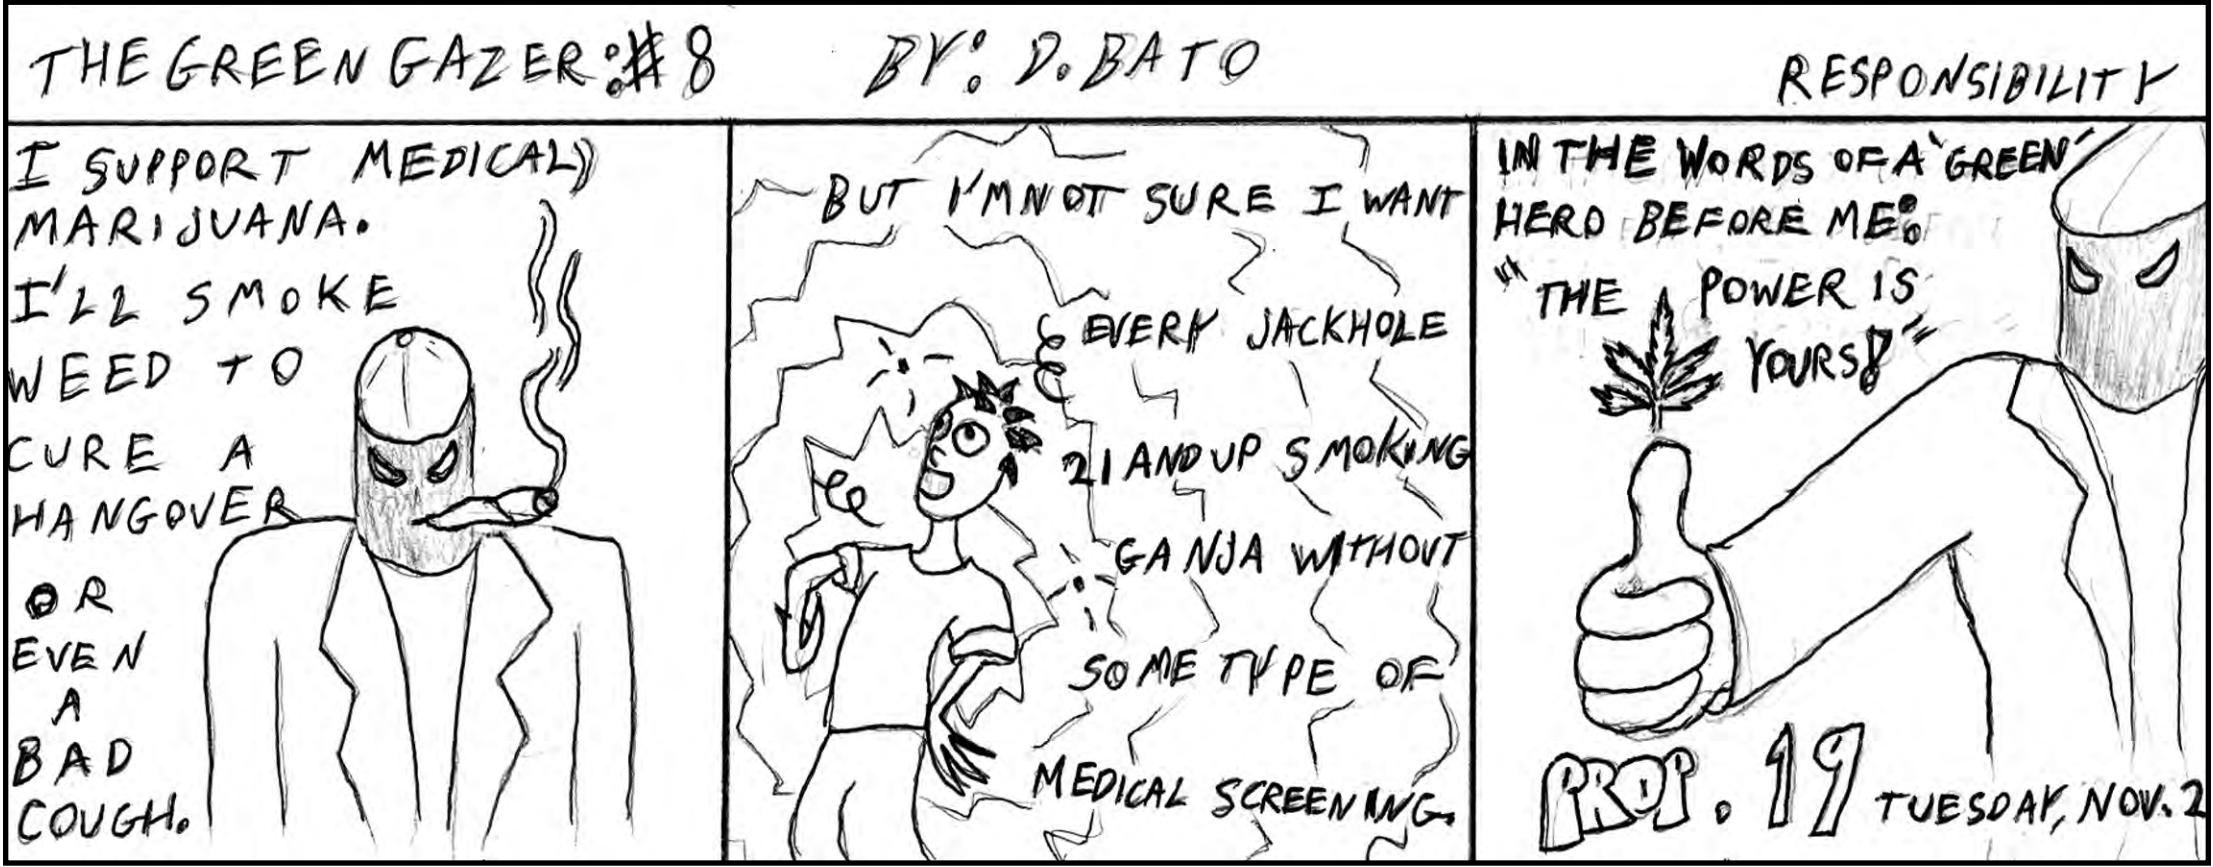 THE GREEN GAZER: #8
BY: D. BATO
RESPONSIBILITY
I SUPPORT MEDICAL
MARIJUANA.
I'LL SMOKE
WEED TO
CURE A
HANGOVER
OR
EVEN
A
BAD
COUGH.
BUT I'M NOT SURE I WANT
EVERY JACKHOLE
21 AND UP SMOKING
GANJA WITHOUT
SOME TYPE OF
MEDICAL SCREENING.
IN THE WORDS OF A "GREEN"
HERO BEFORE ME:
"THE POWER IS
YOURS!"
PROP. 19
TUESDAY, NOV. 2